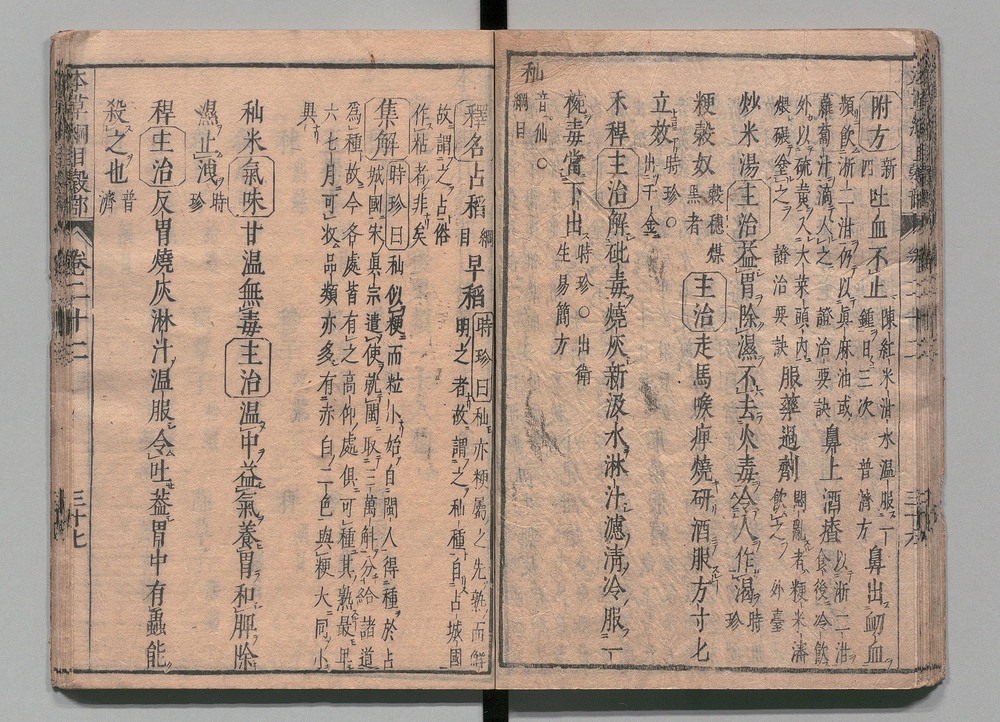 附方 新四 吐血不止 陳紅米泔水温服一鍾日三次 普濟方 鼻出衄血
頻飲淅二泔仍以真麻油或蘿蔔汁滴入之 證治要訣 鼻上酒齄 以淅二泔食後冷飲
外以硫黄入大菜頭内煨碾塗之 證治要訣 服藥過劑 悶亂者粳米瀋飲之 外臺
炒米湯 主治 益胃除濕不去火毒令人作渴 時珍
粳穀奴 穀穗煤黒者 主治 走馬喉痺燒研酒服方寸匕
立效 時珍○出千金
禾稈 主治 解砒毒燒灰新汲水淋汁濾清冷服一
椀毒當下出 時珍○出衛生易簡方
秈 音仙○綱目
釋名 占稻 綱目 早稻 時珍曰秈亦粳屬之先熟而鮮明之者故謂之秈種自占城國
故謂之占俗作粘者非矣
集解 時珍曰秈似粳而粒小始自閩人得種於占
城國宋真宗遣使就閩取三萬斛分給諸道
爲種故今各處皆有之高仰處俱可種其熟最早
六七月可收品類亦多有赤白二色與粳大同小
異
秈米 氣味 甘温無毒 主治 温中益氣養胃和脾除
濕止洩 時珍
稈 主治 反胃燒灰淋汁温服令吐蓋胃中有蟲能
殺之也 普濟
本草綱目穀部
卷二十二
三十七
三十六